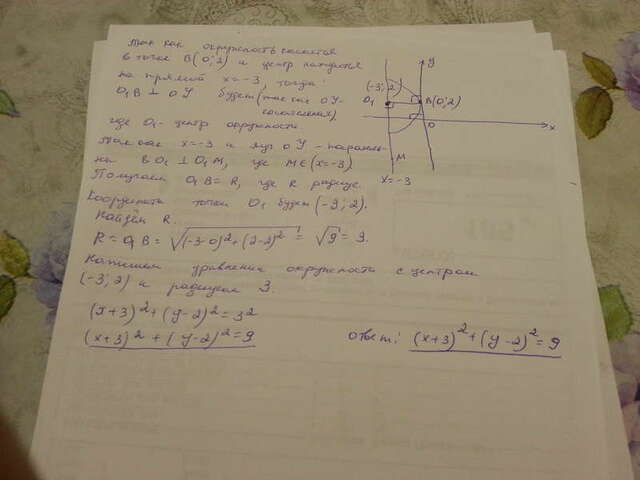 Так как окружность касается
в точке B(0;2) и центр находится
на прямой x=-3, тогда:
O₁B ⊥ OY будет (так как OY-
касательная),
где O₁- центр окружности.
Так как x=-3 и ось OY - параллель-
ны BO₁ ⊥ O₁M, где M∈(x=-3)
Получаем O₁B=R, где R радиус.
Координаты точки O₁ будет (-3;2).
Найдём R.
R = O₁B = √(-3-0)²+(2-2)² = √9 = 3.
Напишем уравнение окружности с центром
(-3;2) и радиусом 3.
(x+3)²+(y-2)²=3²
(x+3)²+(y-2)²=9
ответ: (x+3)²+(y-2)²=9
y
(-3;2)
O₁
B(0;2)
O
x
M
x=-3